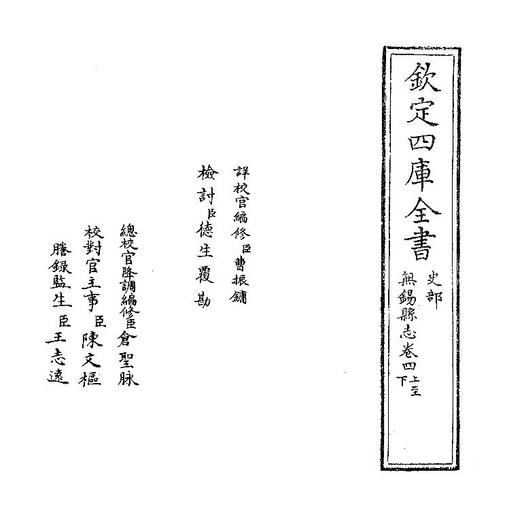 欽定四庫全書
史部
無錫縣志卷四上至下
詳校官編修臣曹振鏞
檢討臣德生覆勘
總校官降調編修臣倉聖脉
校對官主事臣陳文樞
謄錄監生臣王志遠